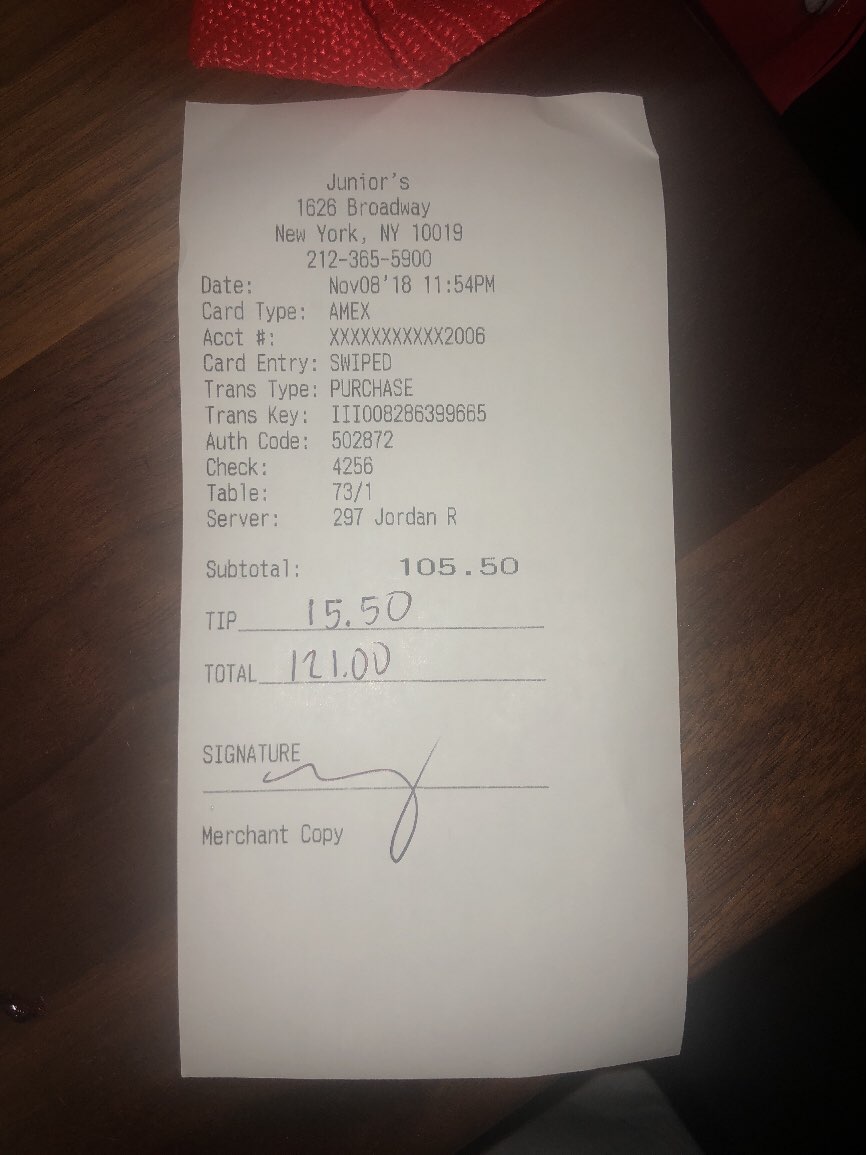 Junior's
1626 Broadway
New York, NY 10019
212-365-5900
Date: Nov08'18 11:54PM
Card Type: AMEX
Acct #: XXXXXXXXXXX2006
Card Entry: SWIPED
Trans Type: PURCHASE
Trans Key: III008286399665
Auth Code: 502872
Check: 4256
Table: 73/1
Server: 297 Jordan R
Subtotal: 105.50
TIP 15.50
TOTAL 121.00
SIGNATURE
Merchant Copy